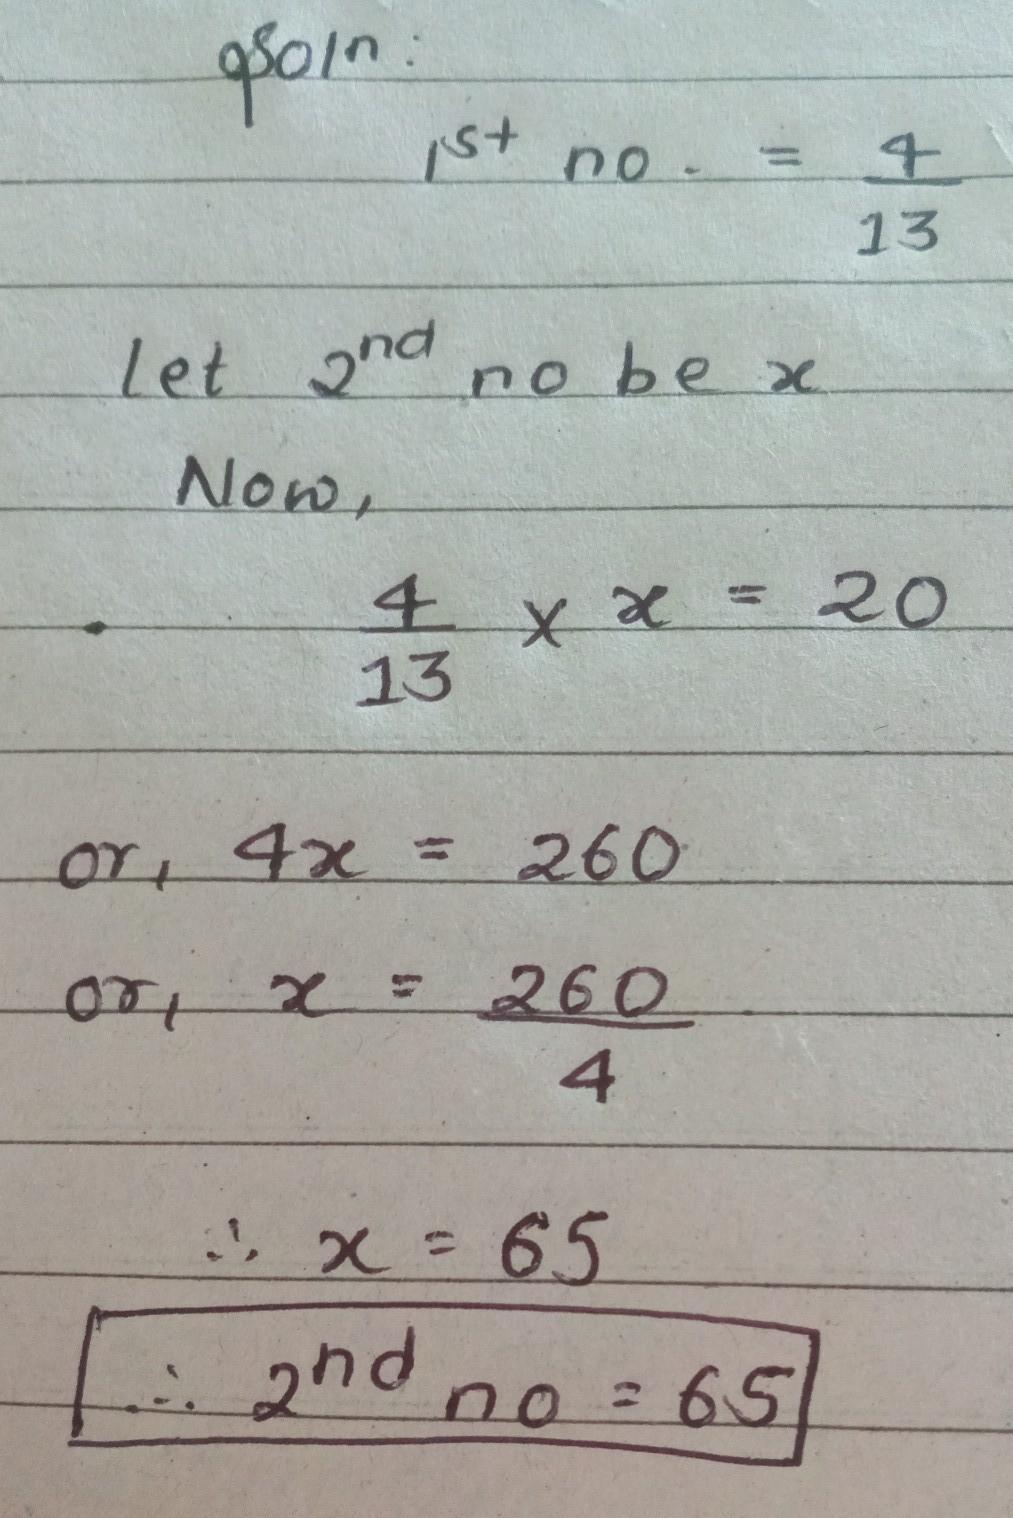 Soln:
1st no. = 4/13
let 2nd no be x
Now,
4/13 × x = 20
or, 4x = 260
or, x = 260/4
∴ x = 65
∴ 2nd no = 65